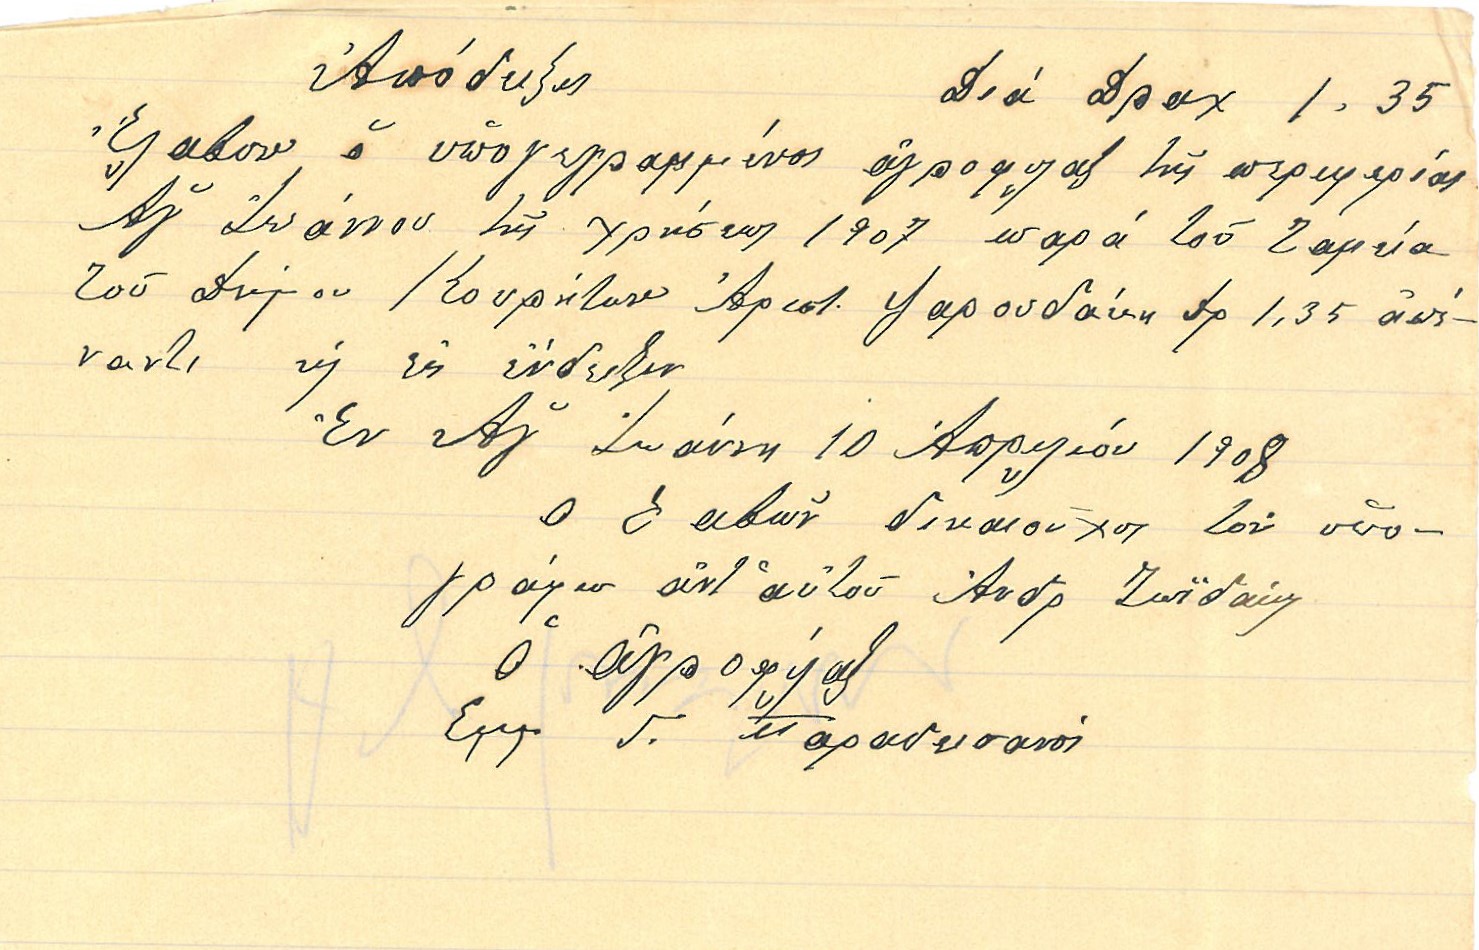 Ἀπόδειξις Διά Δραχ 1.35
Ἔλαβον ὁ ὑπογεγραμμένος ἀγροφύλαξ τῆς περιφερίας
Ἁγ Ἰωάννου τῆς χρήσεως 1907 παρά τοῦ ταμεία
τοῦ Δήμου Κουρητων Ἀριστ. Ψαρουδάκη δρ 1,35 ἀπέ-
ναντι εἰς ἔνδειξιν
Ἐν Ἁγ Ἰωάννη 10 Ἀπρυλιόυ 1908
ὁ λαβων δικαιοῦχος τοῦ ὑπο-
γράφω ἀντ αὐτοῦ Ἀνδρ Ζωϊδάκη
Ὁ ἀγροφύλαξ
Εμμ Γ. Παραδεισανός